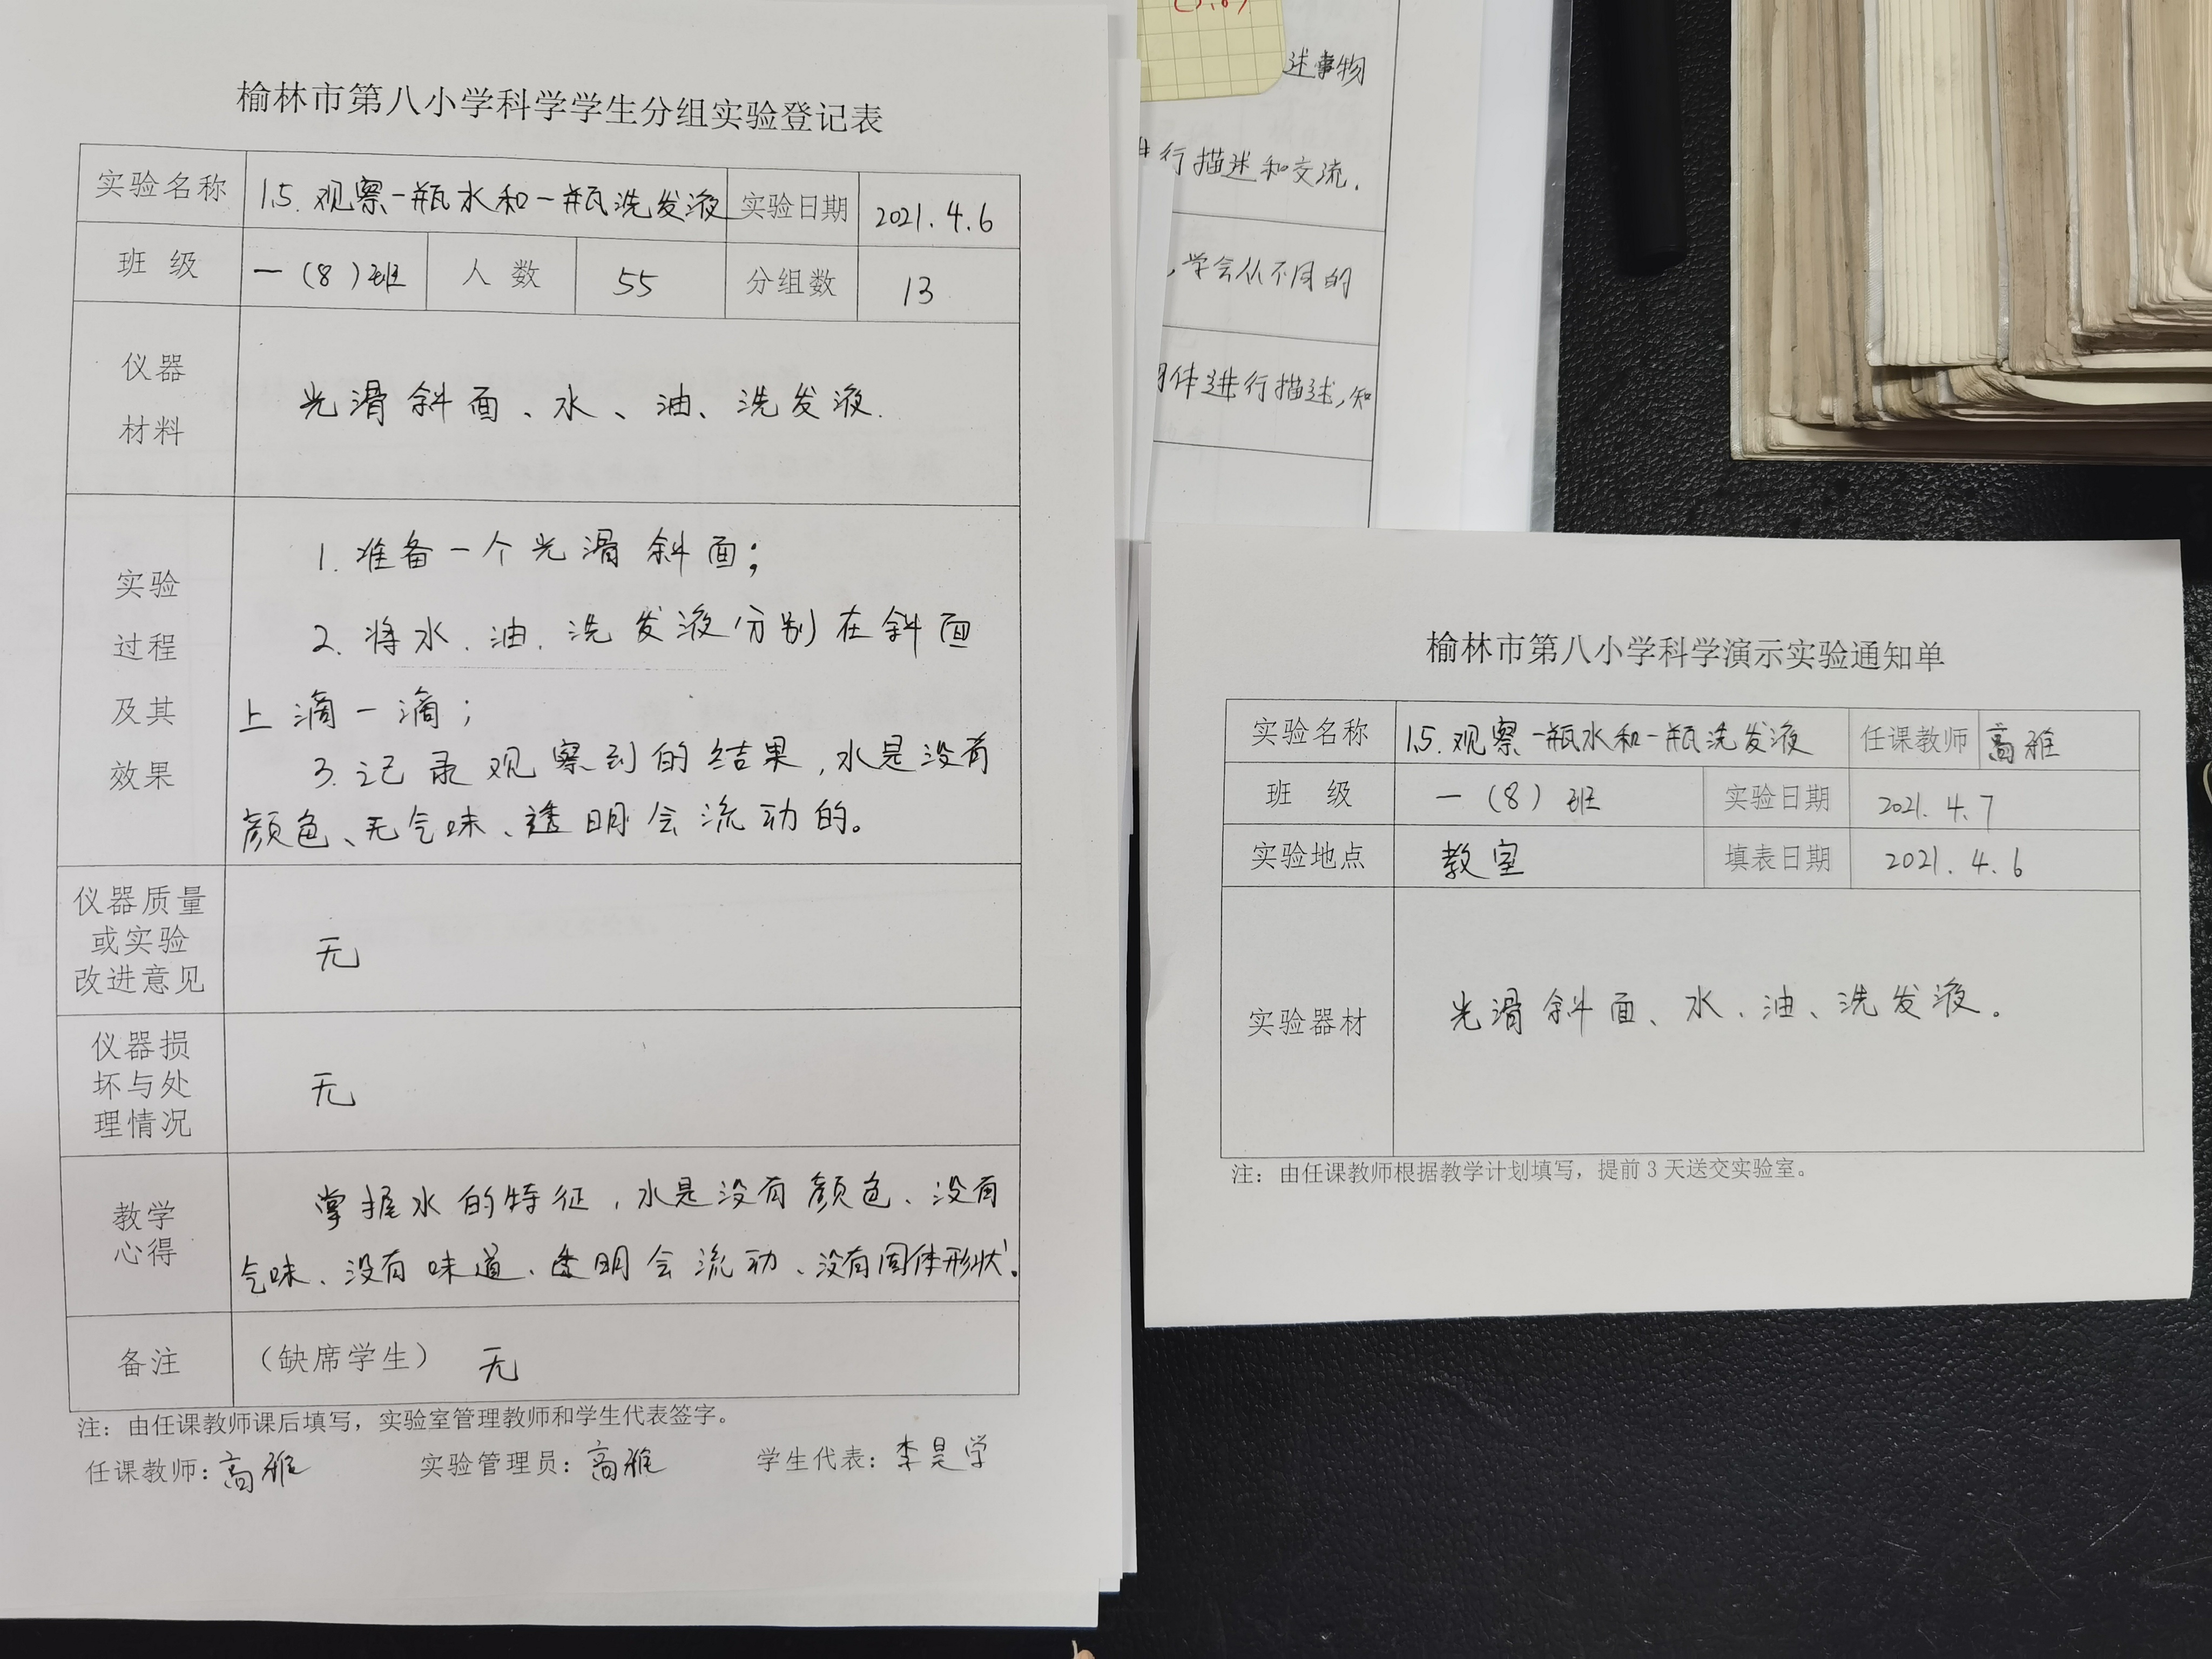 榆林市第八小学科学学生分组实验登记表
实验名称 1.5.观察一瓶水和一瓶洗发液 实验日期 2021.4.6
班 级 一(8)班 人 数 55 分组数 13
仪器
材料
光滑斜面、水、油、洗发液.
实验
过程
及其
效果
1.准备一个光滑斜面;
2.将水.油.洗发液分别在斜面
上滴一滴;
3.记录观察到的结果,水是没有
颜色、无气味、透明会流动的。
仪器质量
或实验
改进意见
无
仪器损
坏与处
理情况
无
教学
心得
掌握水的特征,水是没有颜色、没有
气味、没有味道、透明会流动、没有固体形状.
备注 (缺席学生) 无
注：由任课教师课后填写，实验室管理教师和学生代表签字。
任课教师：高雅 实验管理员：高雅 学生代表：李昊学
述事物
行描述和交流.
,学会从不同的
体进行描述,知
榆林市第八小学科学演示实验通知单
实验名称 1.5.观察一瓶水和一瓶洗发液 任课教师 高雅
班 级 一(8)班 实验日期 2021.4.7
实验地点 教室 填表日期 2021.4.6
实验器材 光滑斜面、水、油、洗发液。
注：由任课教师根据教学计划填写，提前3天送交实验室。